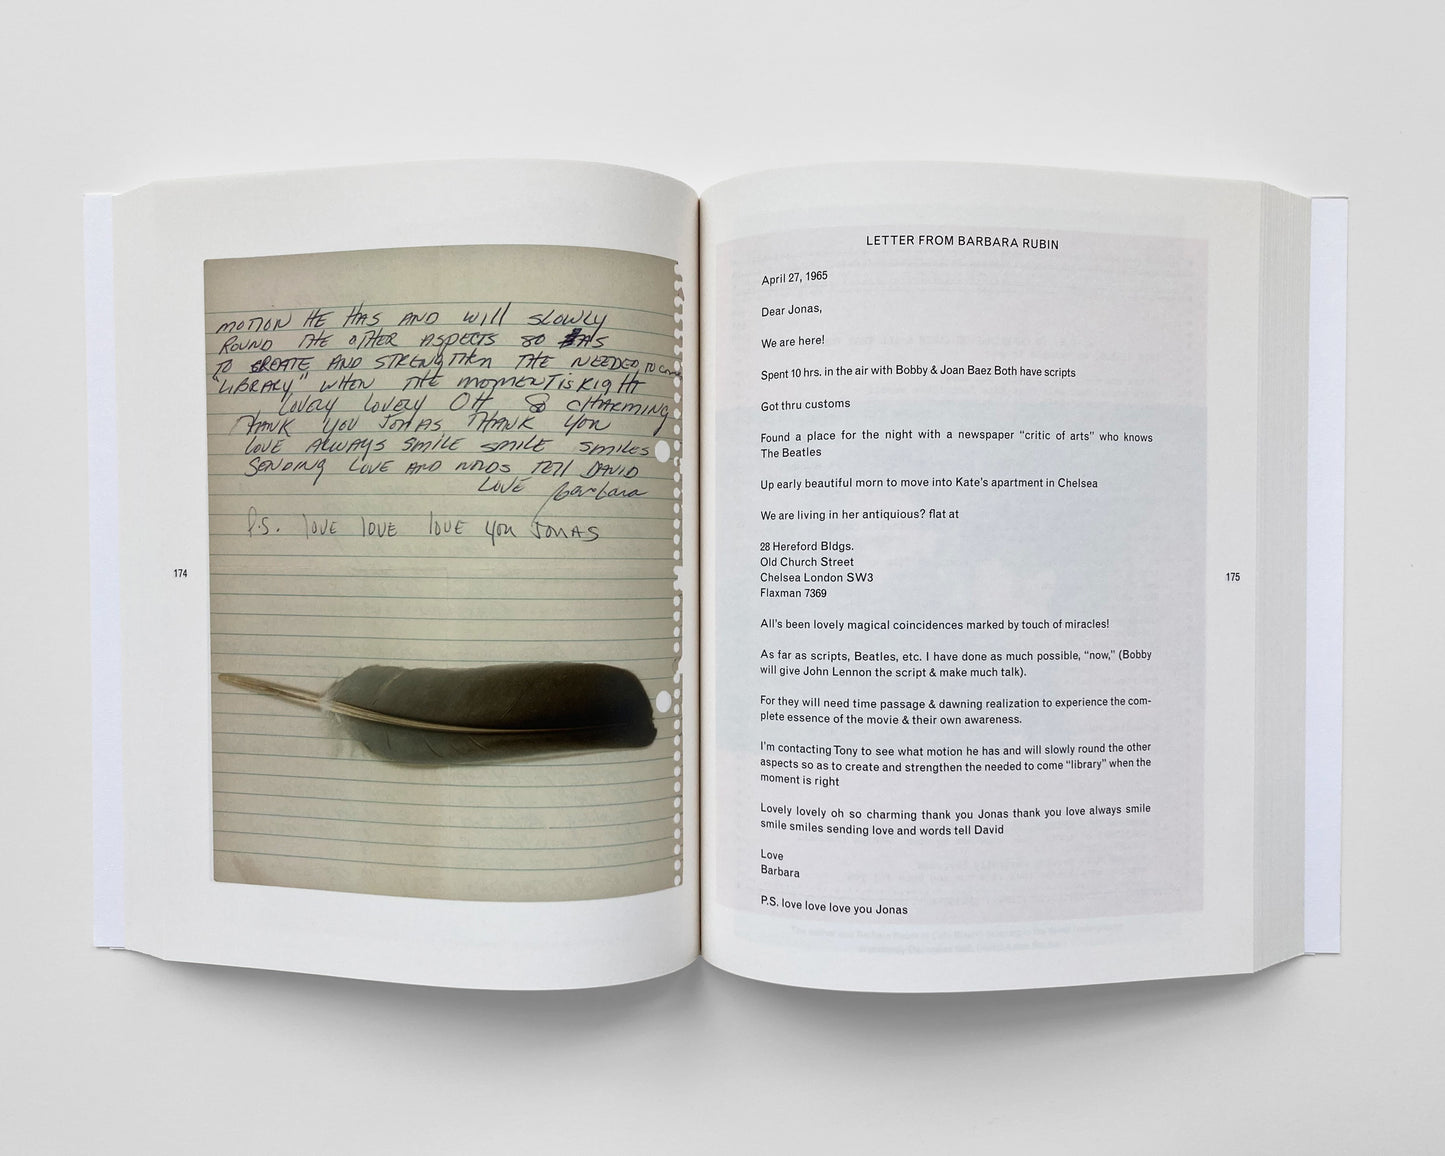 MOTION HE HAS AND WILL SLOWLY
ROUND THE OTHER ASPECTS SO AS
TO CREATE AND STRENGTHEN THE NEEDED TO COME
"LIBRARY" WHEN THE MOMENT IS RIGHT
LOVELY LOVELY OH SO CHARMING
THANK YOU JONAS THANK YOU
LOVE ALWAYS SMILE SMILE SMILES
SENDING LOVE AND WORDS TELL DAVID
LOVE Barbara
P.S. love love love you JONAS
174
LETTER FROM BARBARA RUBIN
April 27, 1965
Dear Jonas,
We are here!
Spent 10 hrs. in the air with Bobby & Joan Baez Both have scripts
Got thru customs
Found a place for the night with a newspaper “critic of arts” who knows
The Beatles
Up early beautiful morn to move into Kate’s apartment in Chelsea
We are living in her antiquious? flat at
28 Hereford Bldgs.
Old Church Street
Chelsea London SW3
Flaxman 7369
All’s been lovely magical coincidences marked by touch of miracles!
As far as scripts, Beatles, etc. I have done as much possible, “now,” (Bobby
will give John Lennon the script & make much talk).
For they will need time passage & dawning realization to experience the com-
plete essence of the movie & their own awareness.
I’m contacting Tony to see what motion he has and will slowly round the other
aspects so as to create and strengthen the needed to come “library” when the
moment is right
Lovely lovely oh so charming thank you Jonas thank you love always smile
smile smiles sending love and words tell David
Love
Barbara
P.S. love love love you Jonas
175